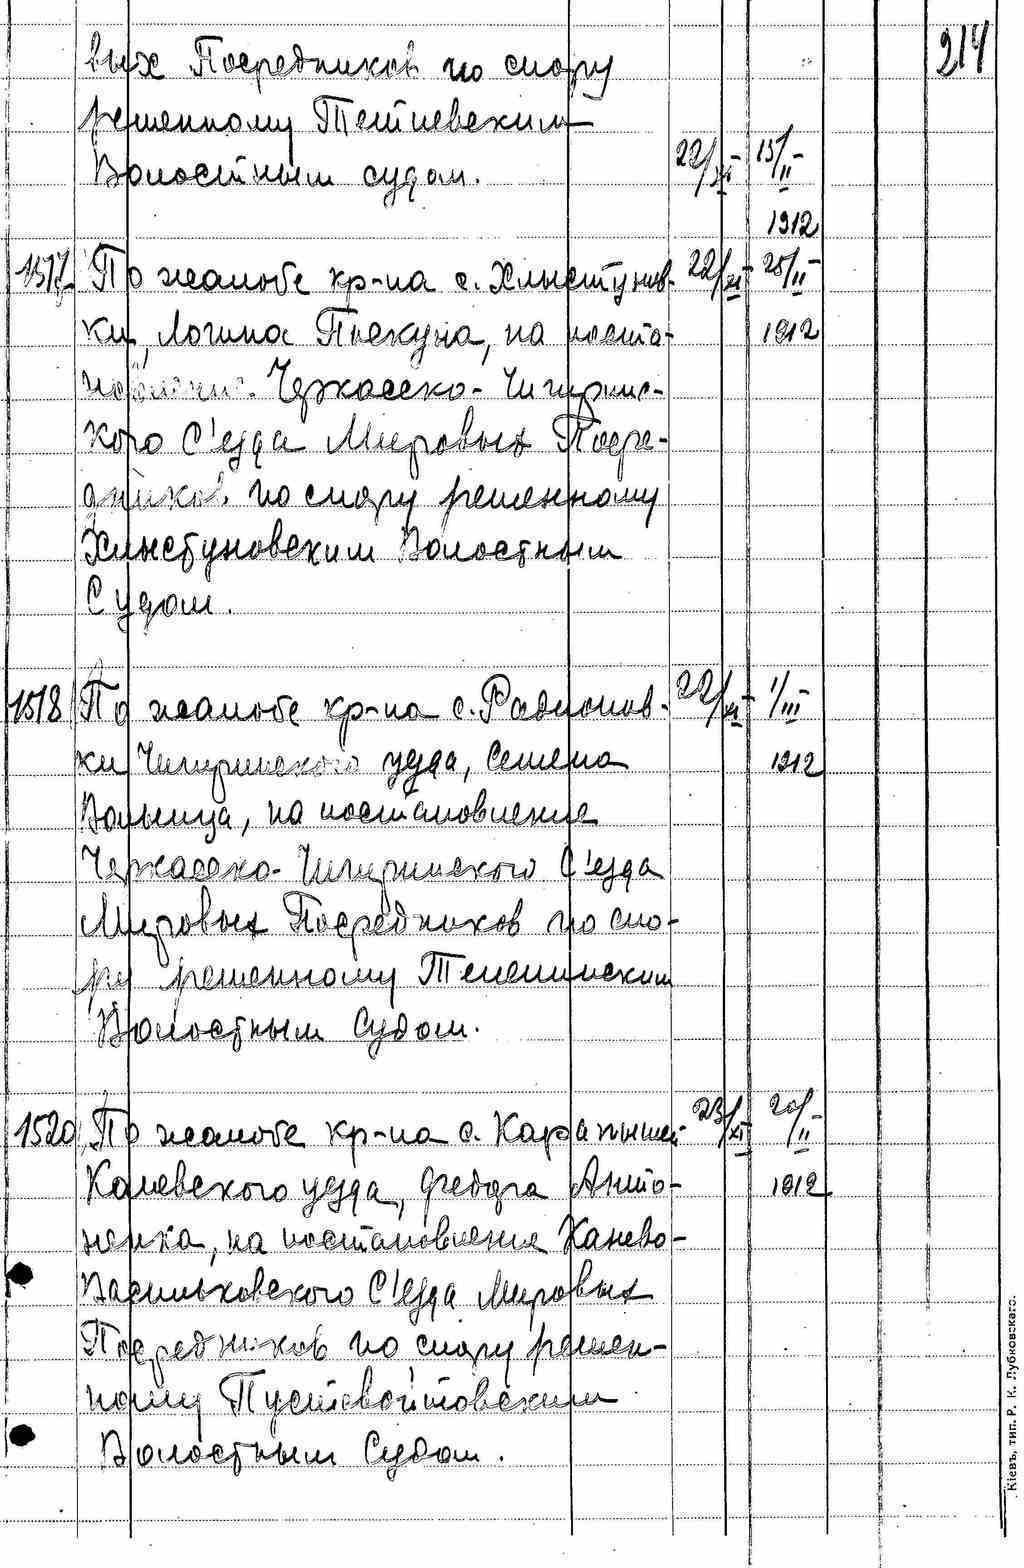 214
вых Посредников по спору
решенному Тетиевским
Волостным судом. 22/XI - 15/II -
1912
1517 По жалобе кр-на с. Хлыстунов- 22/XI - 25/II -
ки, Логина Поекуна, на поста- 1912
новление Черкасско-Чигиринс-
кого С'езда Мировых Посре-
дников по спору решенному
Хлыстуновским Волостным
Судом.
1518 По жалобе кр-на с. Радионов- 22/XI - 1/III
ки Чигиринского уезда, Семена 1912
на постановление
Черкасско-Чигиринского С'езда
Мировых Посредников по спо-
ру решенному Телепинским
Волостным Судом.
1520 По жалобе кр-на с. Карапышей 23/XI - 20/II -
Каневского уезда, Федора Анто- 1912
ненка, на постановление Канево-
Васильковского С'езда Мировых
Посредников по спору решен-
ному Пустовойтовским
Волостным Судом.
Кіевъ, тип. Р. К. Лубковскаго.